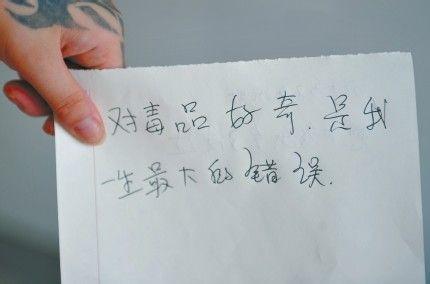 对毒品好奇.是我
一生最大的错误.